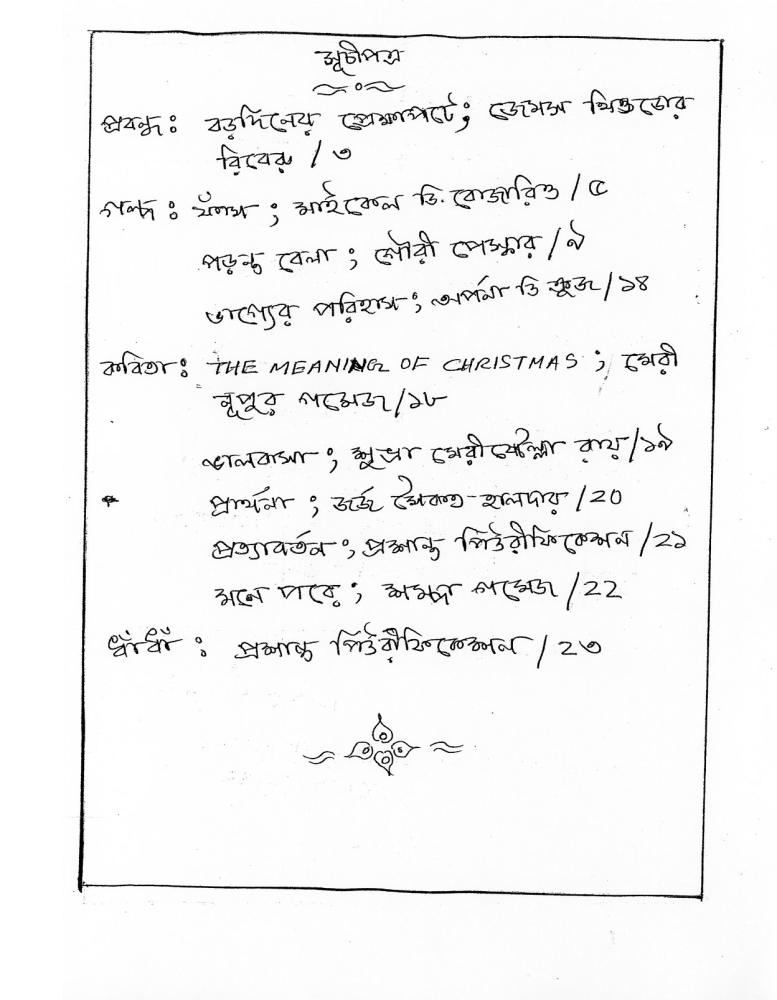 সূচীপত্র
প্রবন্ধ : বড়দিনের প্রেক্ষাপটে ; জেমস থিওডোর
রিবেরু / ৩
গল্প : ফাঁস ; মাইকেল ডি. রোজারিও / ৫
পড়ন্ত বেলা ; গৌরী পেস্কার / ৯
ভাগ্যের পরিহাস ; অর্পনা ডি ক্রুজ / ১৪
কবিতা : THE MEANING OF CHRISTMAS ; মেরী
নূপুর গমেজ / ১৮
ভালবাসা ; শুভ্রা মেরীষ্টেল্লা রায় / ১৯
প্রার্থনা ; জর্জ সৈকত হালদার / 20
প্রত্যাবর্তন ; প্রশান্ত পিউরীফিকেশন / ২১
মনে পরে ; গমেজ / 22
ধাঁধাঁ : প্রশান্ত পিউরীফিকেশন / ২৩